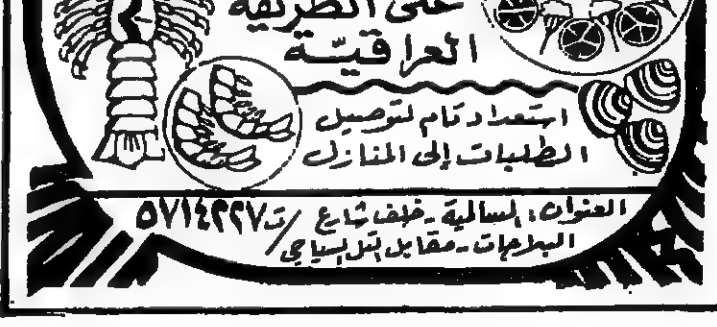 على الطريقة
العراقية
استعداد تام لتوصيل
الطلبات إلى المنازل
العنوان: السالمية - خلف شارع / ت ٥٧١٤٢٢٧
البلاجات - مقابل التل السياحي